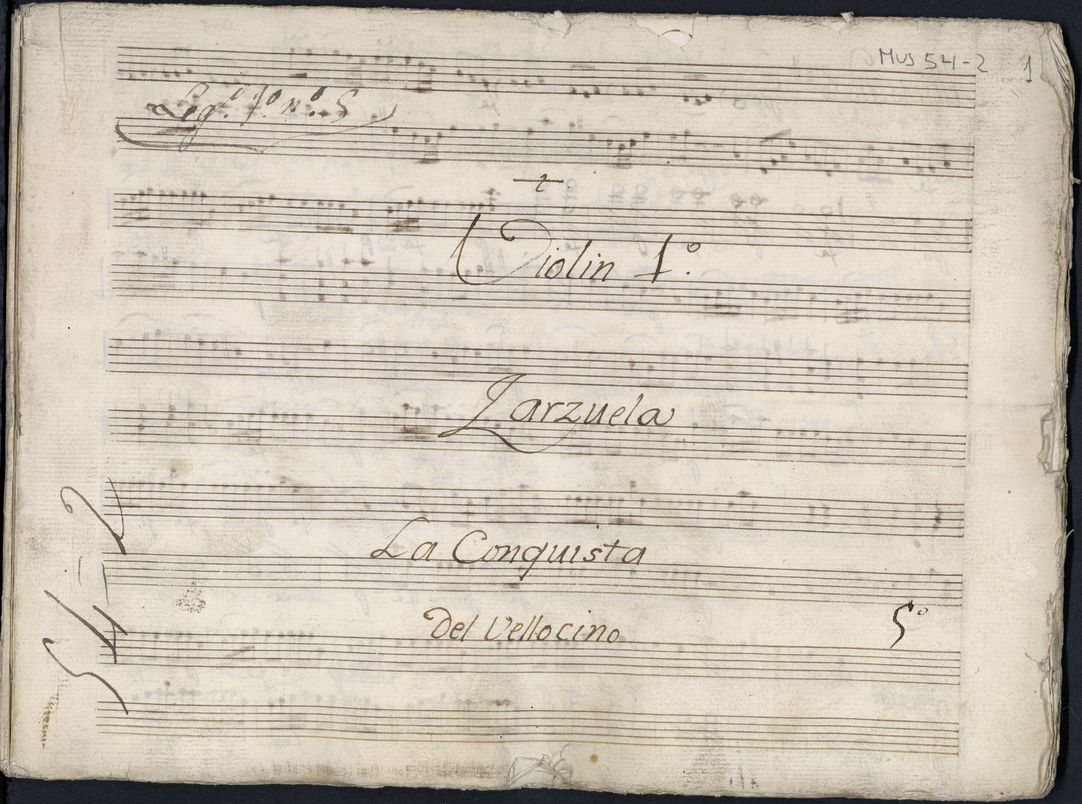 Mus 54-2 1
Leg.º 1º nº. 5
Violin 1º.
Zarzuela
La Conquista
Del Vellocino
5º
54-2